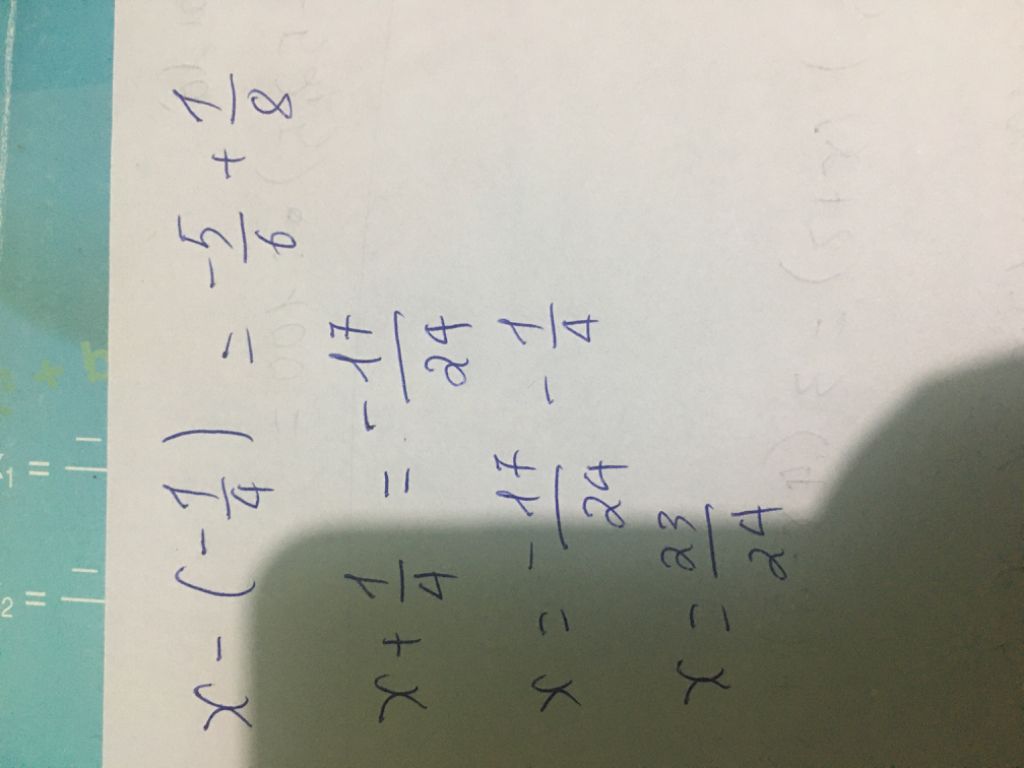 x - (-1/4) = -5/6 + 1/8
x + 1/4 = -17/24
x = -17/24 - 1/4
x = 23/24